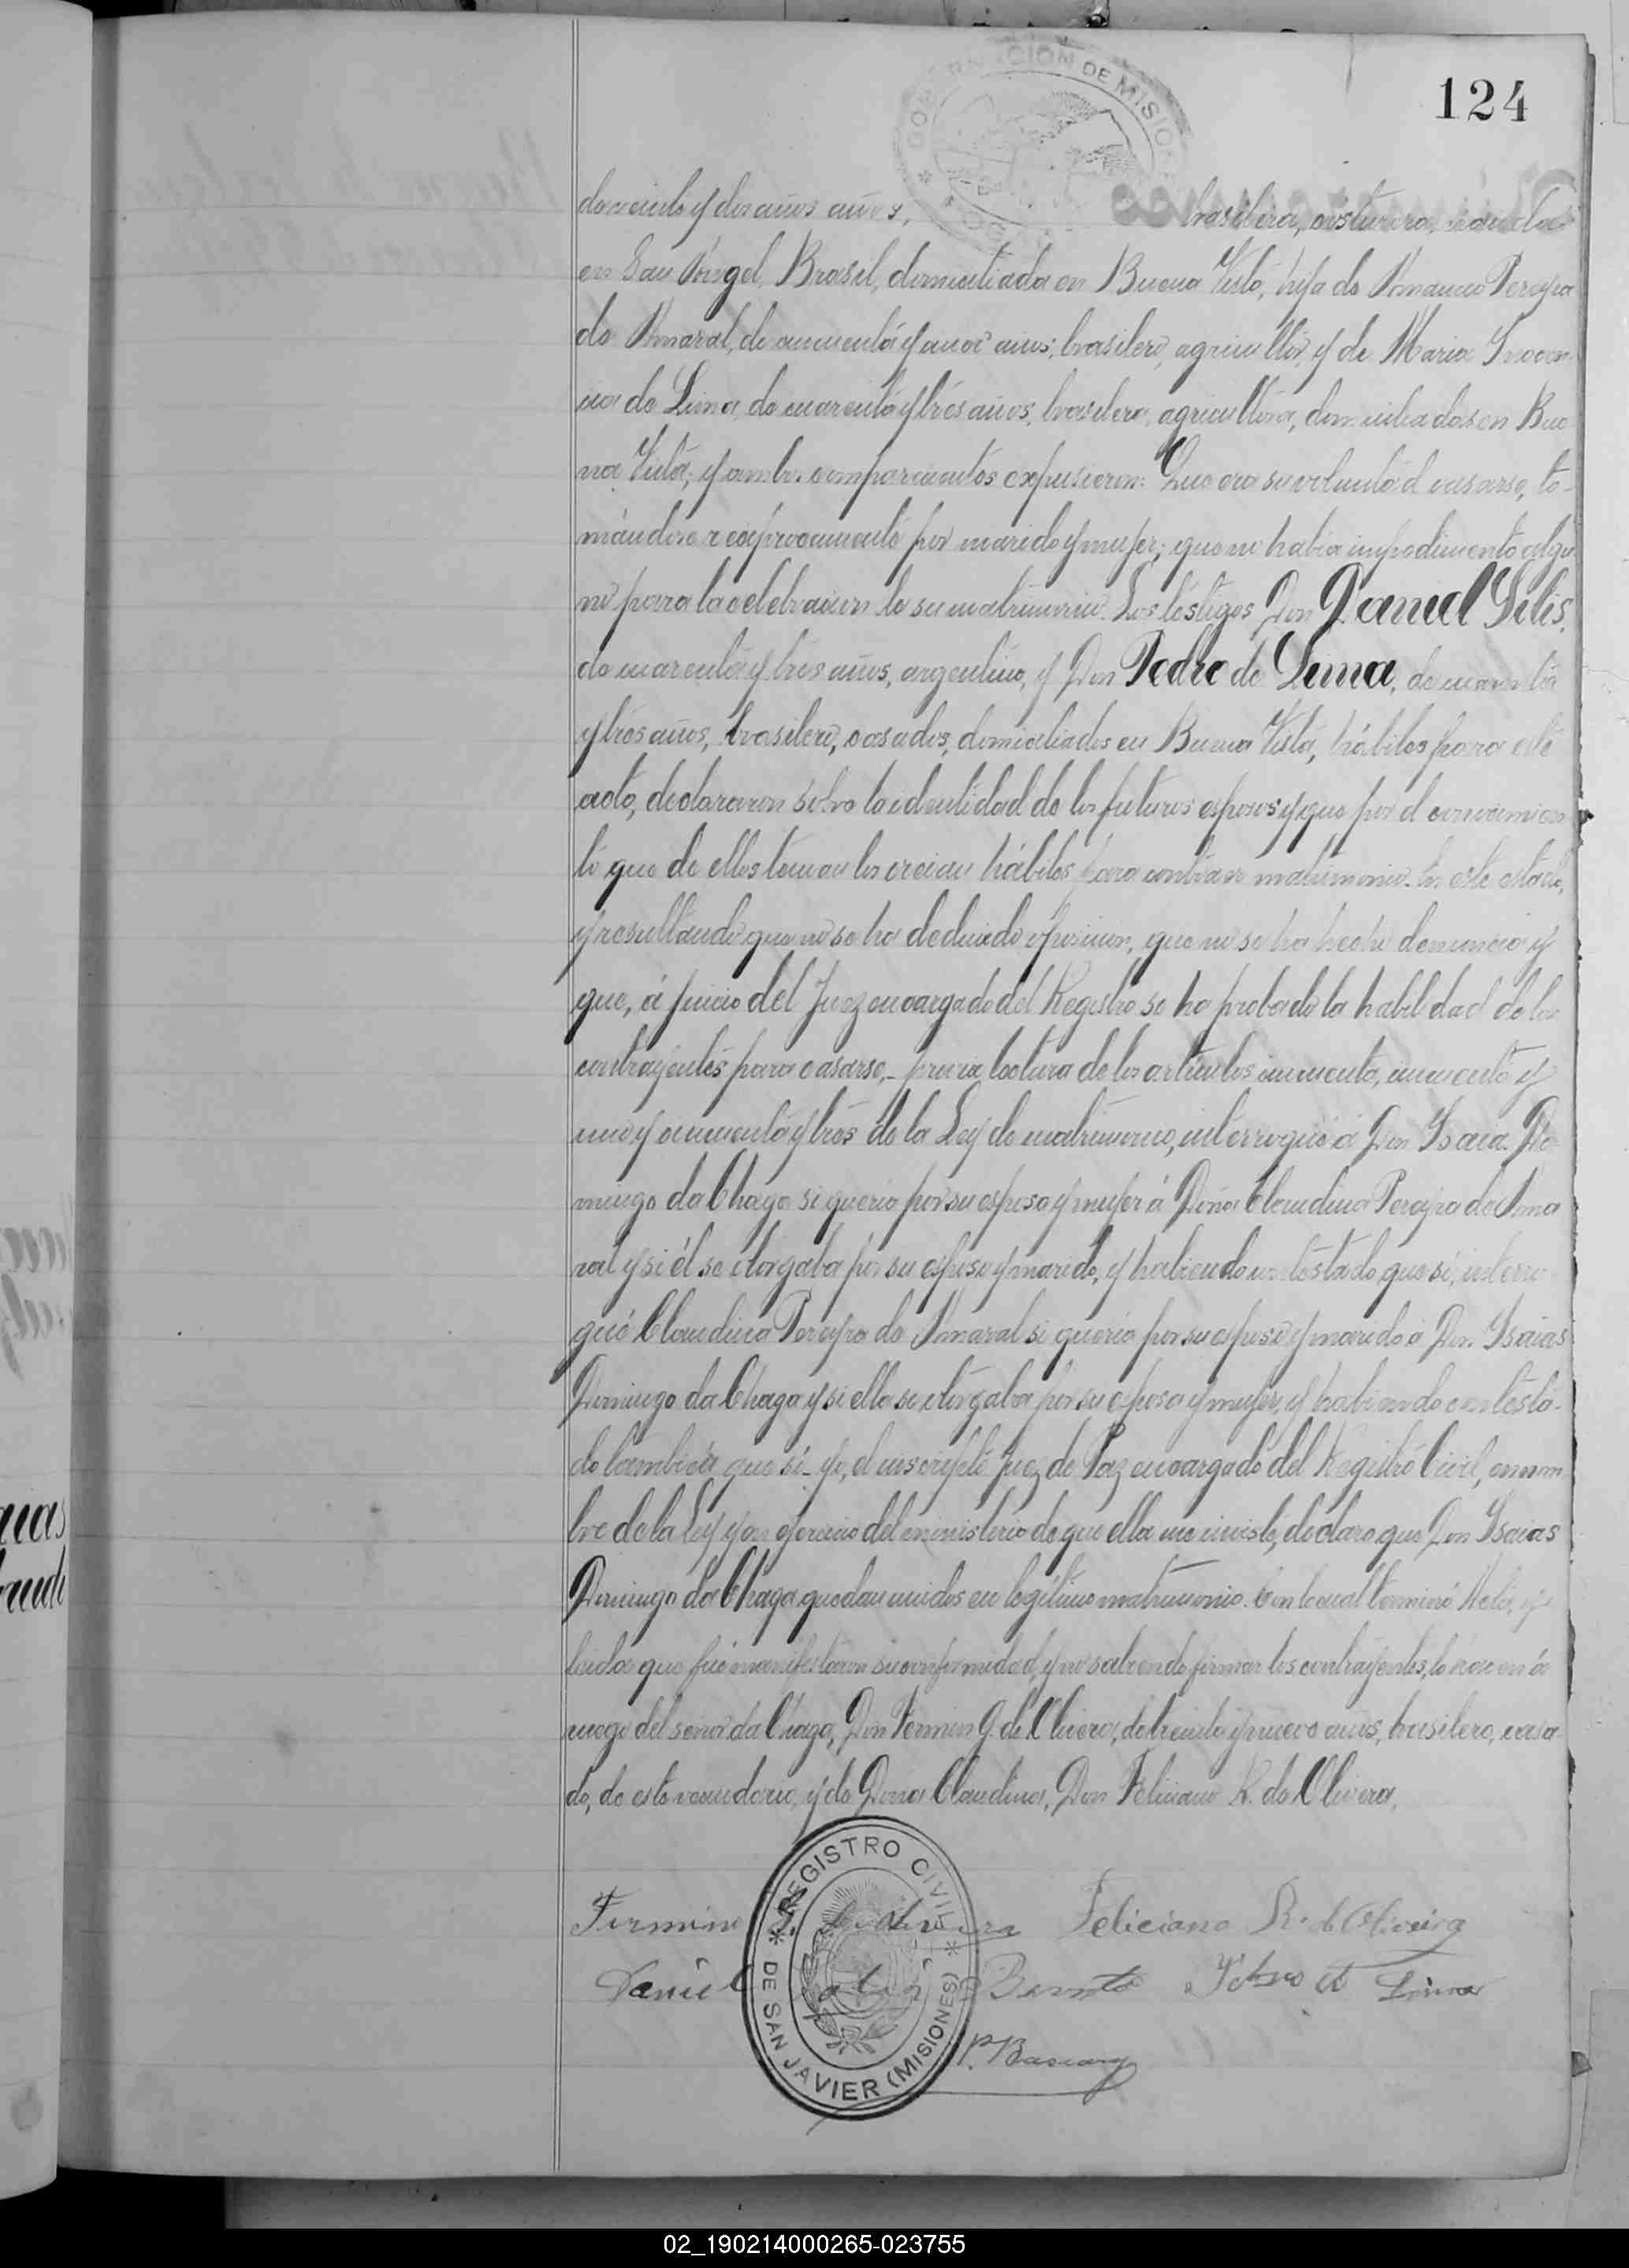 GOBERNACION DE MISIONES
124
y dos años años, brasilera, costurera, nacida
en San Angel, Brasil, domiciliada en Buena Vista, hija de Amancio Pereyra
do Amaral, de cincuenta y años, brasilero, agricultor, y de Maria Inocen-
cia de Lima, de cuarenta y trés años, brasilera, agricultora, domiciliados en Bue-
na Vista; y ambos comparecientos expusieron: Que era su voluntad casarse, to-
mándose reciprocamente por marido y mujer; que no habia impedimento algu
no para la celebracion de su matrimonio. Los testigos Don Daniel Silis,
de cuarenta y tres años, argentino, y Don Pedro de Lima, de cuarenta
y trés años, brasilero, casados, domiciliados en Buena Vista, hábiles para este
acto, declararon sobre la identidad de los futuros esposos y que por el conocimien
to que de ellos tenian los creian hábiles para contraer matrimonio. En este estado,
y resultando que no se ha deducido oposicion, que no se ha hecho denuncia y
que, á juicio del Juez encargado del Registro se ha probado la habilidad de los
contrayentes para casarse,- previa lectura de los articulos cincuenta, cincuenta y
uno y cincuenta y trés de la Ley de matrimonio, interrogué á Don Isaias Do-
mingo da Chaga si queria por su esposa y mujer á Doña Claudina Pereyra do Ama
ral y si él se otorgaba por su esposo y marido, y habiendo contestado que si, interro-
gué Claudina Pereyra do Amaral si queria por su esposo y marido á Don Isaias
Domingo da Chaga y si ella se otorgaba por su esposa y mujer, y habiendo contesta-
do tambien que sí - yo, el infrascripto Juez de Paz encargado del Registro Civil, en nom
bre de la Ley y en ejercicio del ministerio de que ella me inviste, declaro que Don Isaias
Domingo da Chaga quedan unidos en legítimo matrimonio. Con lo cual terminó Acta, y
leida que fué manifestaron su conformidad, y no sabiendo firmar los contrayentes, lo hacen á
ruego del señor da Chaga, Don Fermin G. de Olivera, de treinta y nueve años, brasilero, casa-
do, de este vecindario, y de Doña Claudina, Don Feliciano R. de Olivera.
Firmino de Olivera Feliciano R. de Oliveira
Daniel Pedro de Lima
P. Bascary
REGISTRO CIVIL
DE SAN JAVIER (MISIONES)
02_190214000265-023755